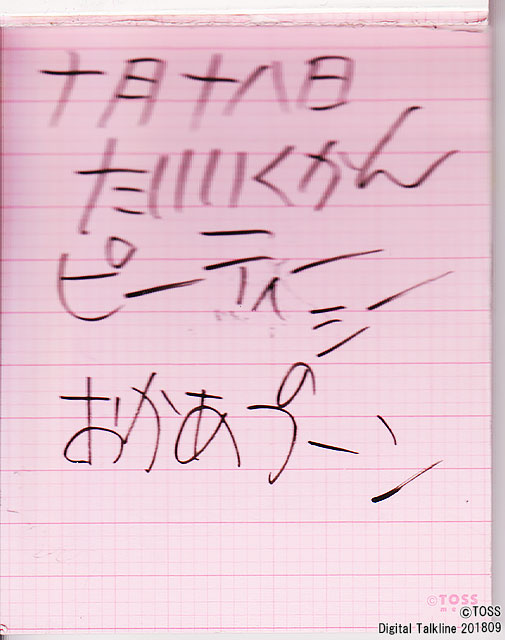 十月十八日
たいいくかん
ピーティーシー
おかあプーン
©TOSS
©TOSS
Digital Talkline 201809